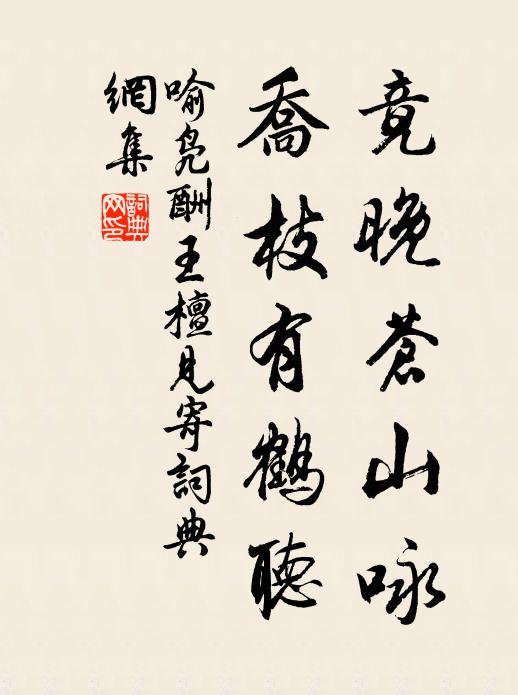 竟晚蒼山咏
喬枝有鶴聽
喻凫酬王檀見寄詞典
網集
詞典網印